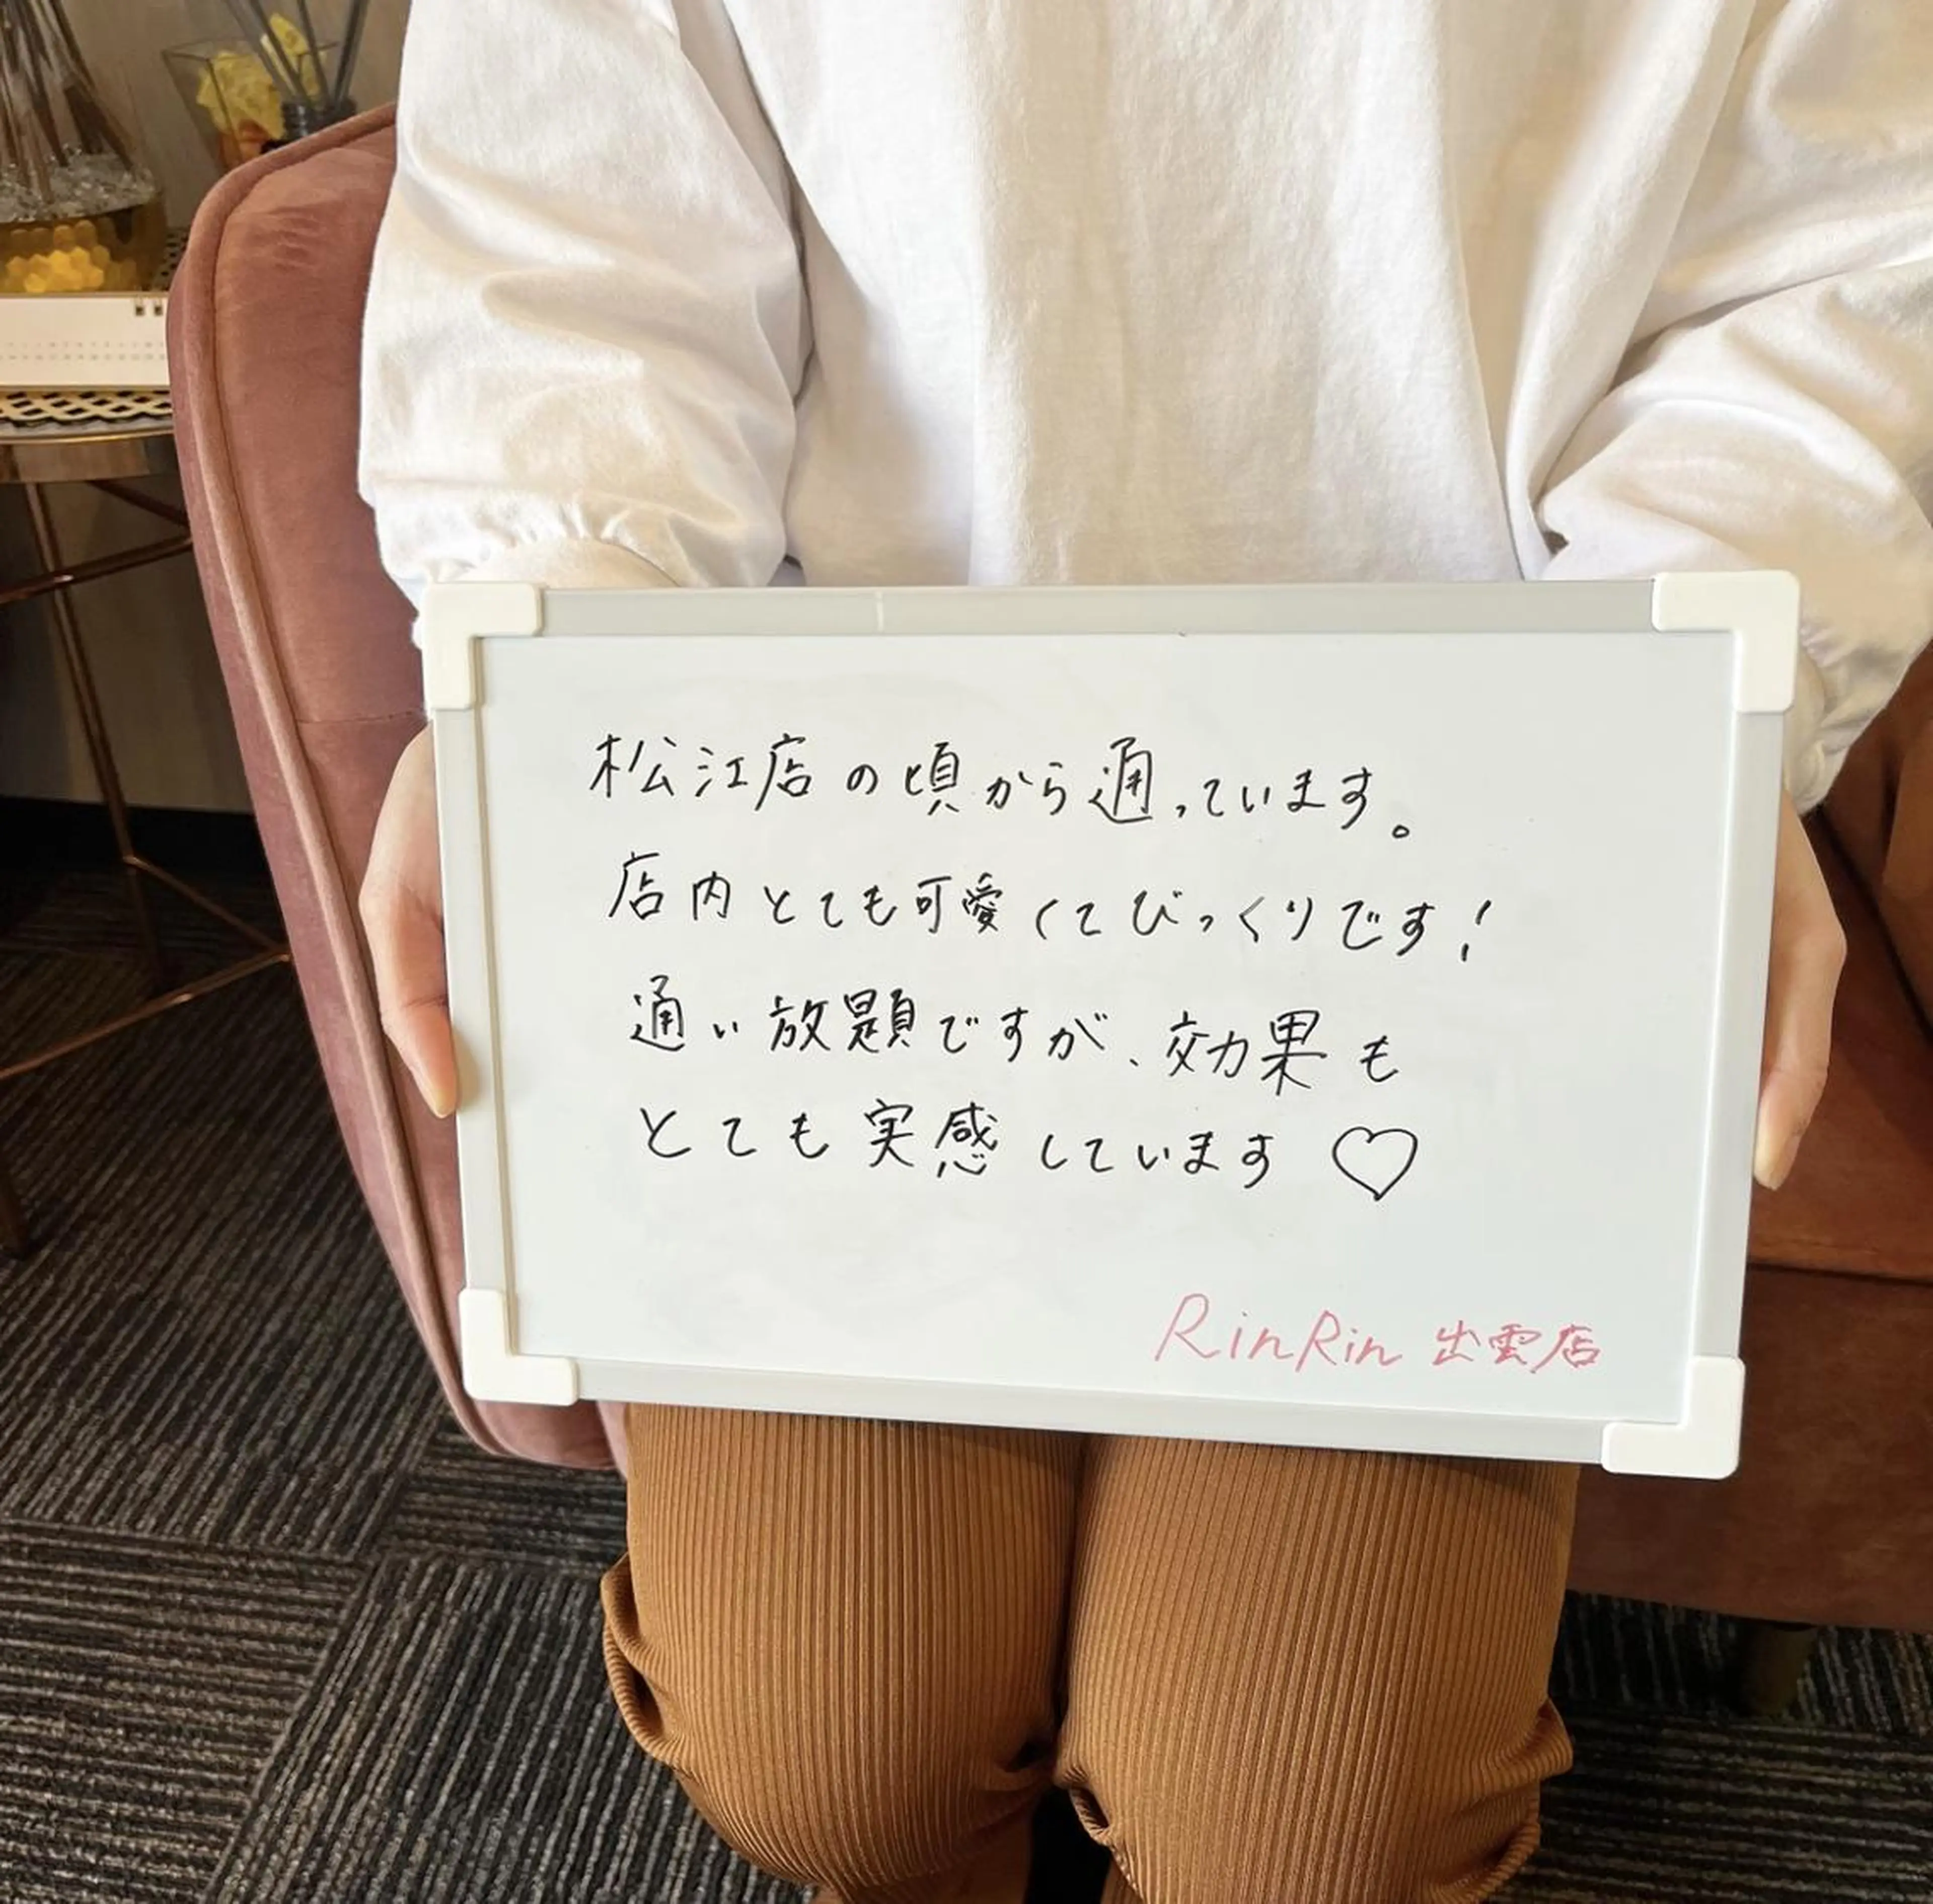 松江店の頃から通っています。
店内とても可愛くてびっくりです!
通い放題ですが、効果も
とても実感しています♡
RinRin 出雲店